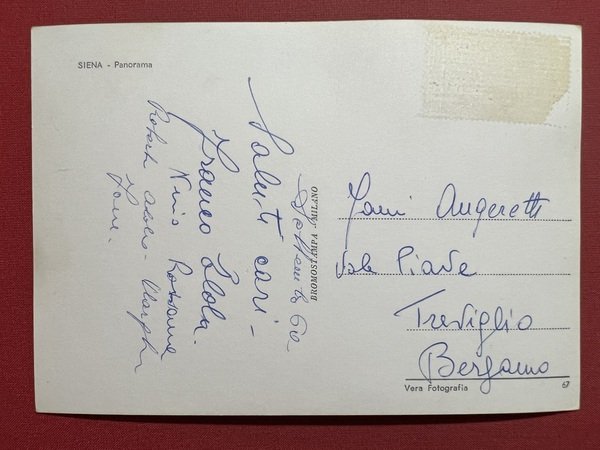 SIENA - Panorama
Saluti cari -
Franco Lola.
Nini Rossana
Settembre 60
BROMOSTAMPA - MILANO
Fam. Angeretti
Viale Piave
Treviglio
Bergamo
Vera Fotografia
67